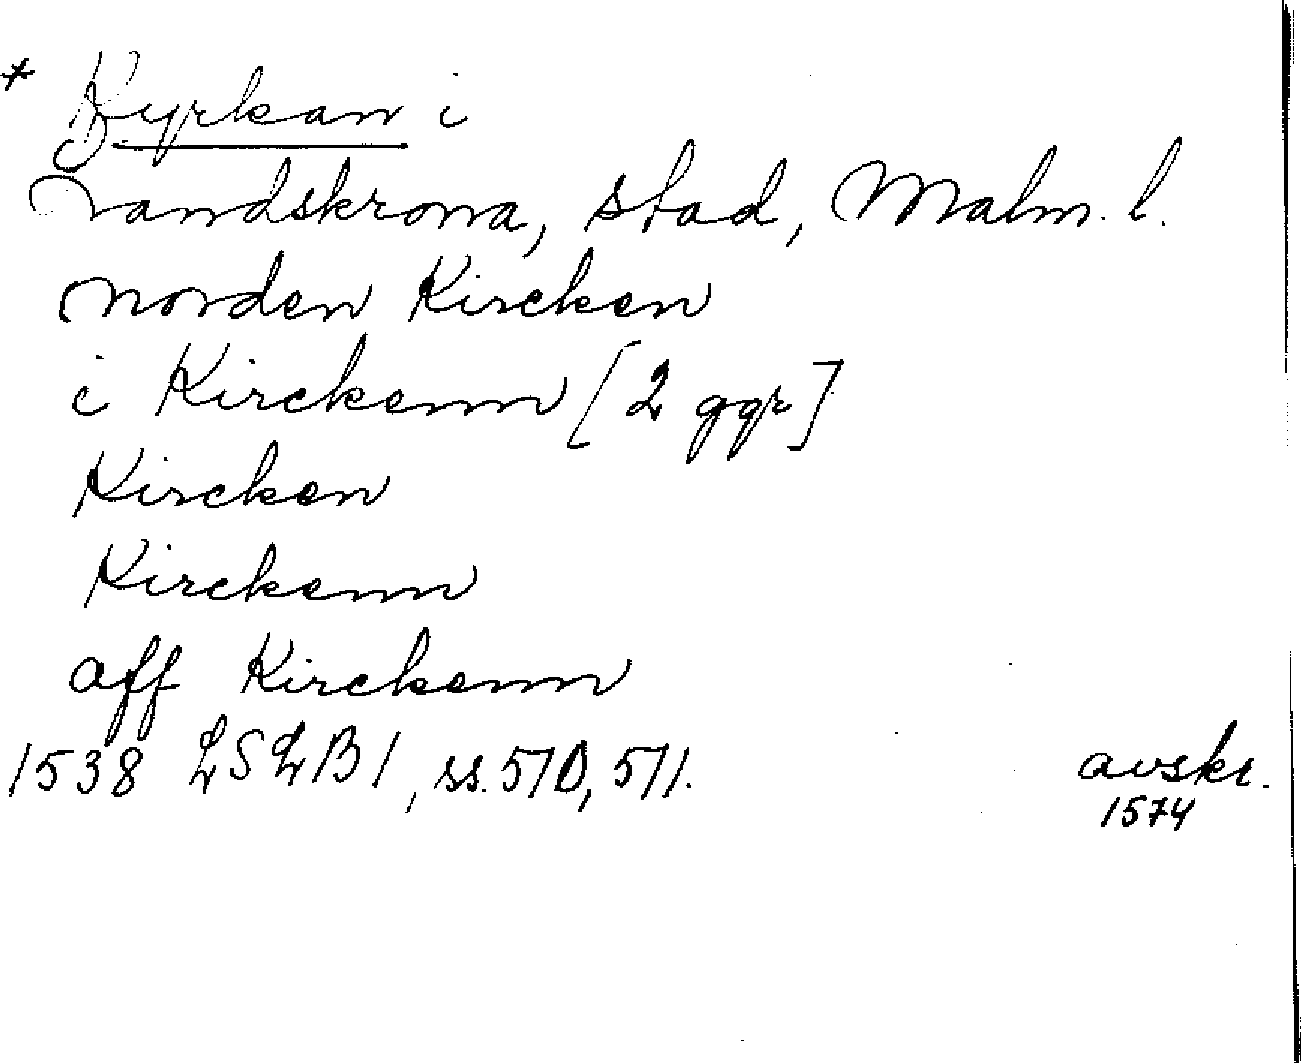 * Kyrkan i
Landskrona, stad, Malm. l.
norden Kircken
i Kirckenn [2 ggr]
Kircken
Kirckenn
aff Kirckenn
1538 LSLB1, ss. 570, 571.
avskr.
1574